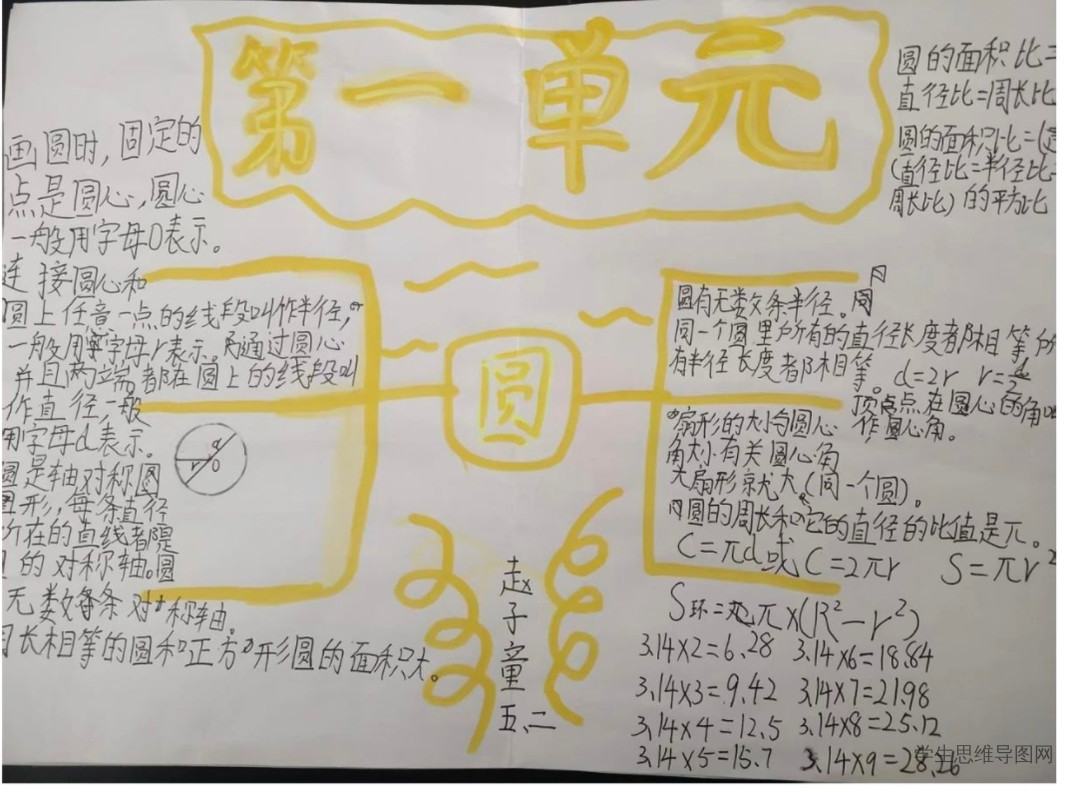 第一单元
画圆时,固定的
点是圆心,圆心
一般用字母O表示。
连接圆心和
圆上任意一点的线段叫作半径,
一般用字母r表示。通过圆心
并且两端都在圆上的线段叫
作直径,一般
用字母d表示。
圆是轴对称图
形,每条直径
所在的直线都是
的对称轴。圆
无数条对称轴。
长相等的圆和正方形圆的面积大。
d
r
O
圆
赵
子
童
五、二
圆的面积比=
直径比=周长比
圆的面积比=(
(直径比=半径比=
周长比)的平方比
圆有无数条半径。同
同一个圆里所有的直径长度都相等所
有半径长度都相等。d=2r r=
顶点在圆心的角
作圆心角。
扇形的大小与圆心
角大小有关圆心角
大扇形就大(同一个圆)。
圆的周长和它的直径的比值是π。
C=πd或C=2πr S=πr²
S环=π×(R²-r²)
3.14×2=6.28 3.14×6=18.84
3.14×3=9.42 3.14×7=21.98
3.14×4=12.5 3.14×8=25.12
3.14×5=15.7 3.14×9=28.26
学生思维导图网